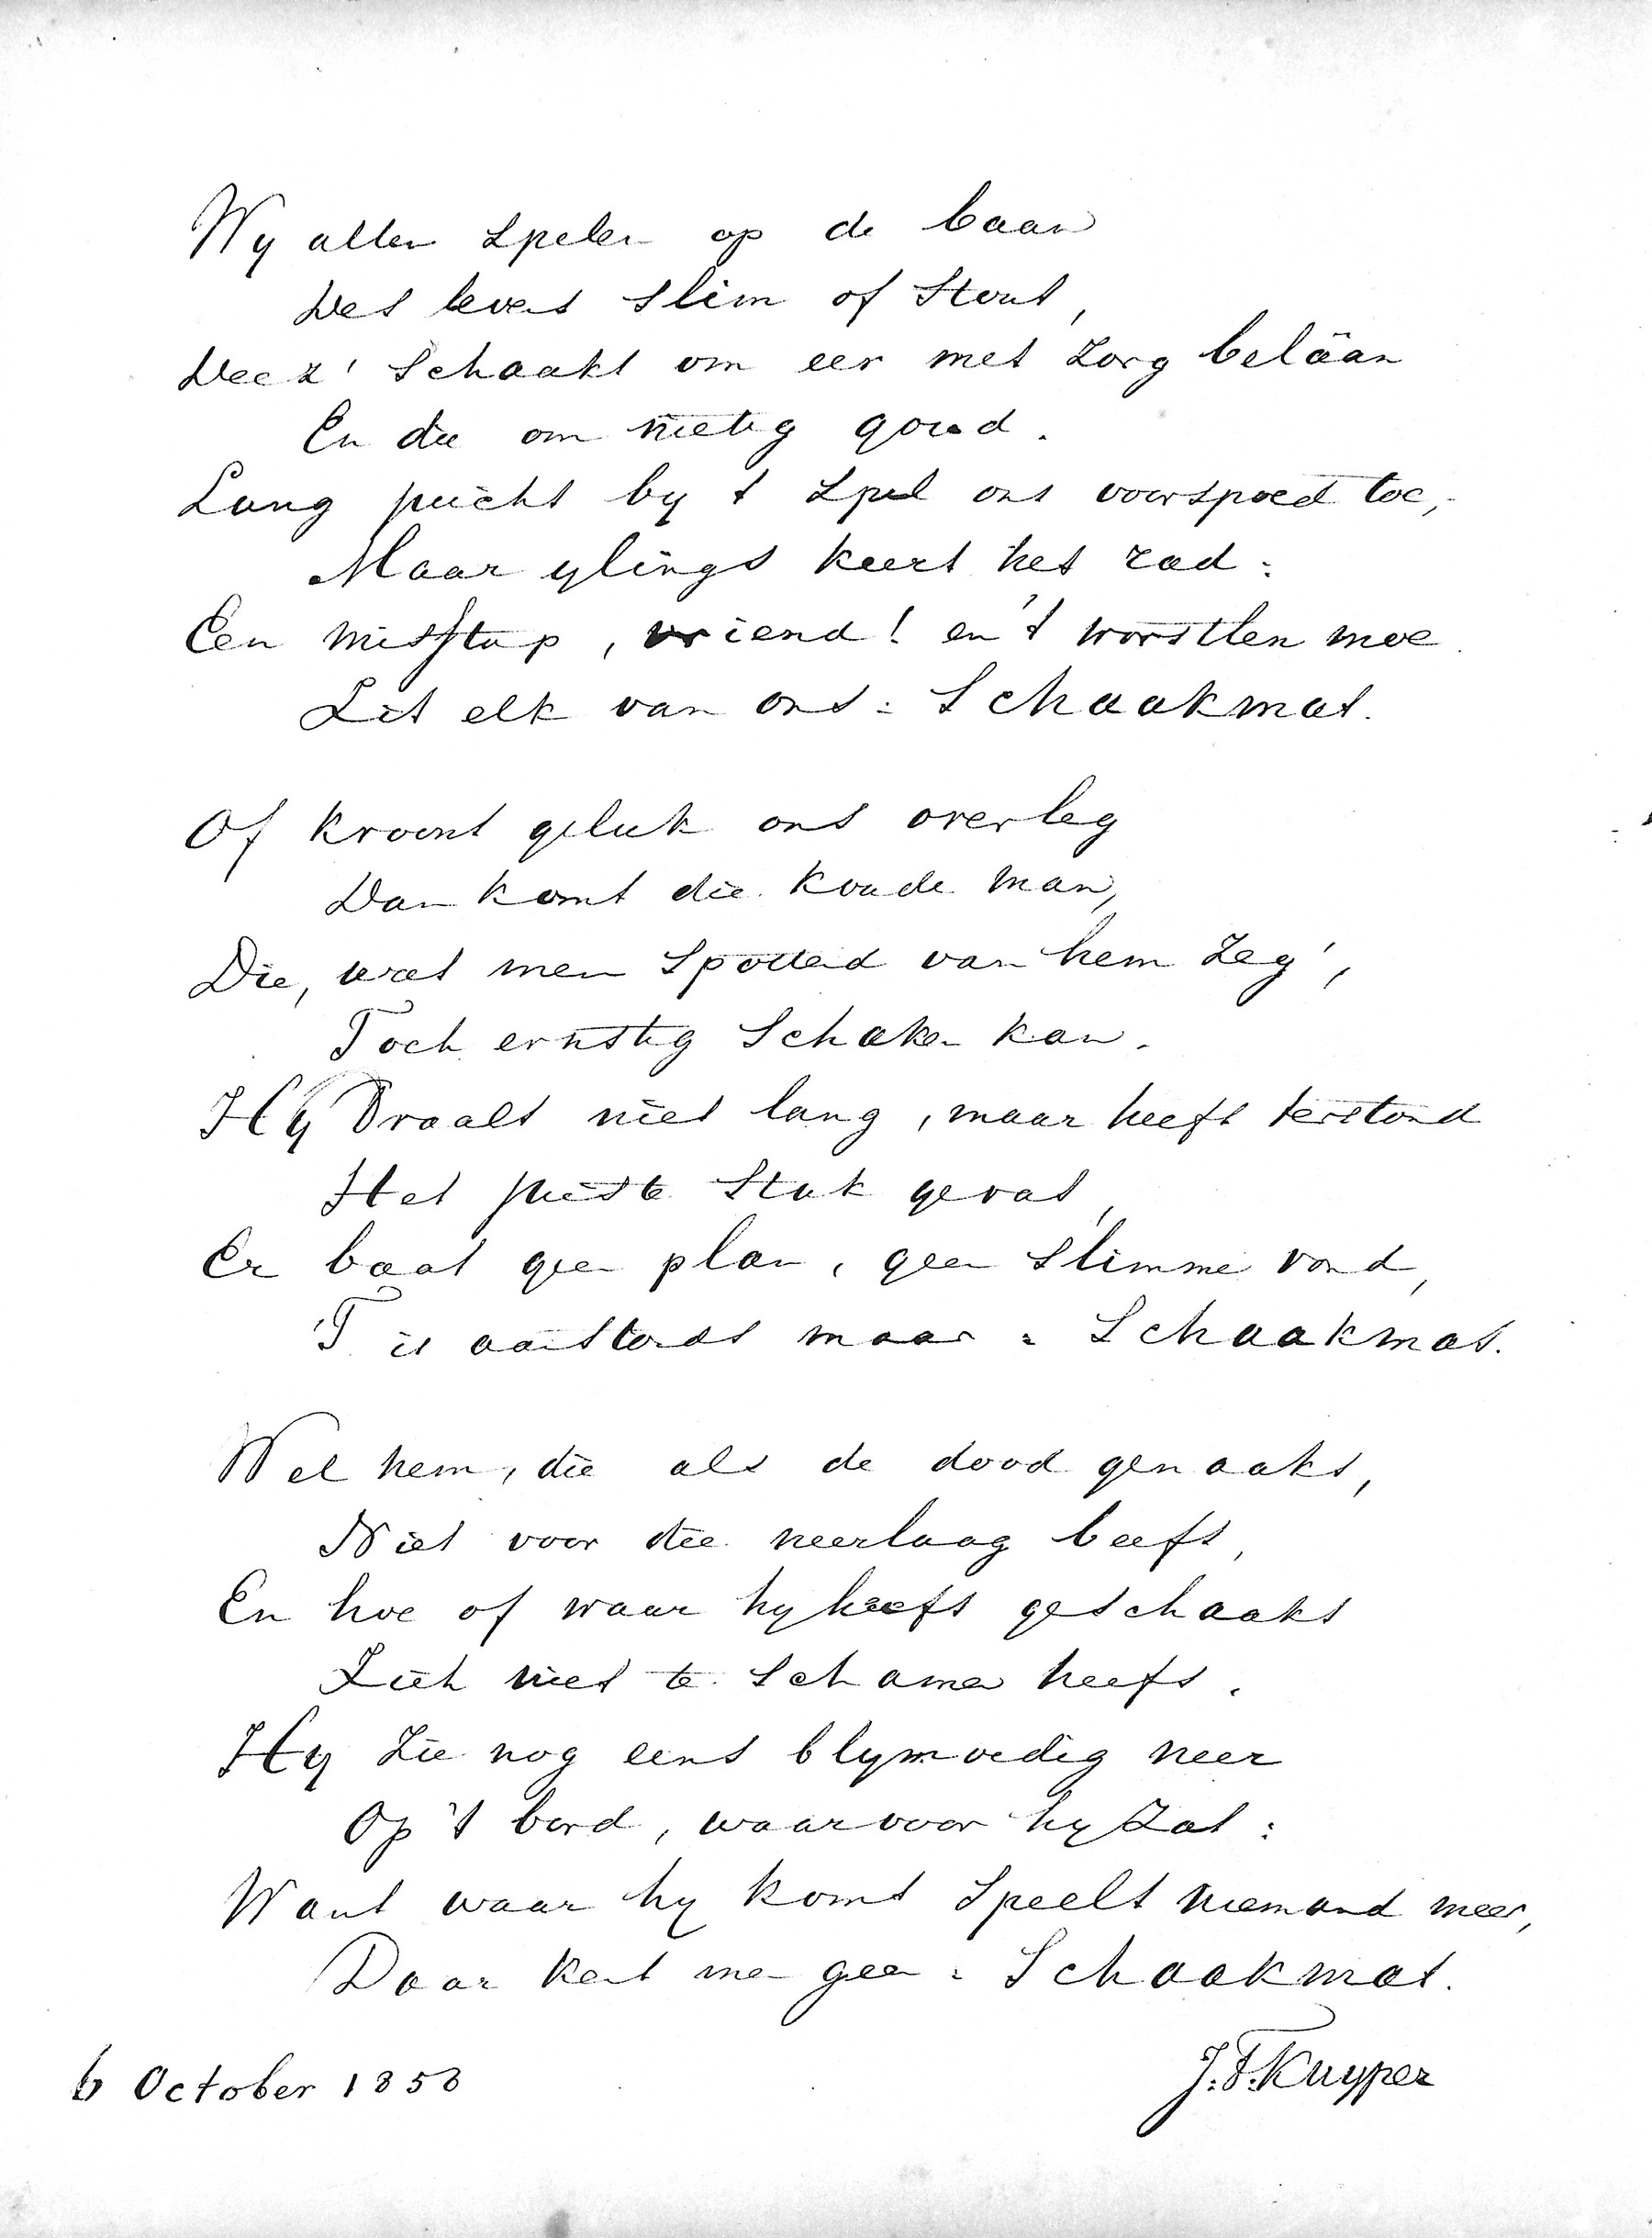 Wy allen spelen op de baan
Des levens slim of stout,
Deez' schaakt om eer met zorg belâan
En die om nietig goud.
Lang juicht by 't spel ons voorspoed toe,
Maar ylings keert het rad:
Een misstap, vriend! en 't worstlen moe
Zit elk van ons: Schaakmat.
Of kroont geluk ons overleg
Dan komt die koude man,
Die, wat men spottend van hem zeg',
Toch ernstig schaken kan.
Hy Draalt niet lang, maar heeft terstond
Het juiste stuk gevat,
Er baat geen plan, geen slimme vond,
'T is aanstonds maar: Schaakmat.
Wel hem, die als de dood genaakt,
Niet voor die neerlaag beeft,
En hoe of waar hy heeft geschaakt
Zich niet te schamen heeft.
Hy zie nog eens blymoedig neer
Op 't bord, waarvoor hy zat:
Want waar hy komt speelt niemand meer,
Daar kent men geen: Schaakmat.
J.F. Kuyper
6 October 1858